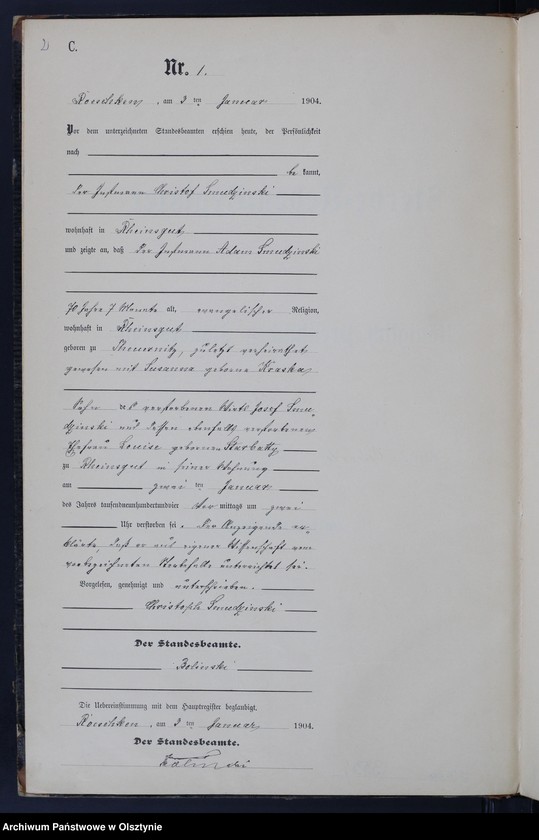 2
C.
Nr. 1.
Roeschken, am 3 ten Januar 1904.
Vor dem unterzeichneten Standesbeamten erschien heute, der Persönlichkeit
nach
be kannt,
der Instmann Christof Smudzinski
wohnhaft in Rheinsgut
und zeigte an, daß der Instmann Adam Smudzinski
70 Jahre 7 Monate alt, evangelischer Religion,
wohnhaft in Rheinsgut
geboren zu, zuletzt verheirathet
gewesen mit Susanna geborene Kraska
Sohn des verstorbenen Wirth Josef Smu-
dzinski und dessen ebenfalls verstorbenen
Ehefrau Louise geborenen
zu Rheinsgut in seiner Wohnung
am zwei ten Januar
des Jahres tausendneunhundertundvier mittags um zwei
Uhr verstorben sei. Der Anzeigende er-
klärte, daß er aus eigener Wissenschaft vom
vorbezeichneten Sterbefalle unterrichtet sei.
Vorgelesen, genehmigt und unterschrieben.
Christoph Smudzinski
Der Standesbeamte.
Bolinski
Die Uebereinstimmung mit dem Hauptregister beglaubigt.
Roeschken, am 3 ten Januar 1904.
Der Standesbeamte.
Archiwum Państwowe w Olsztynie